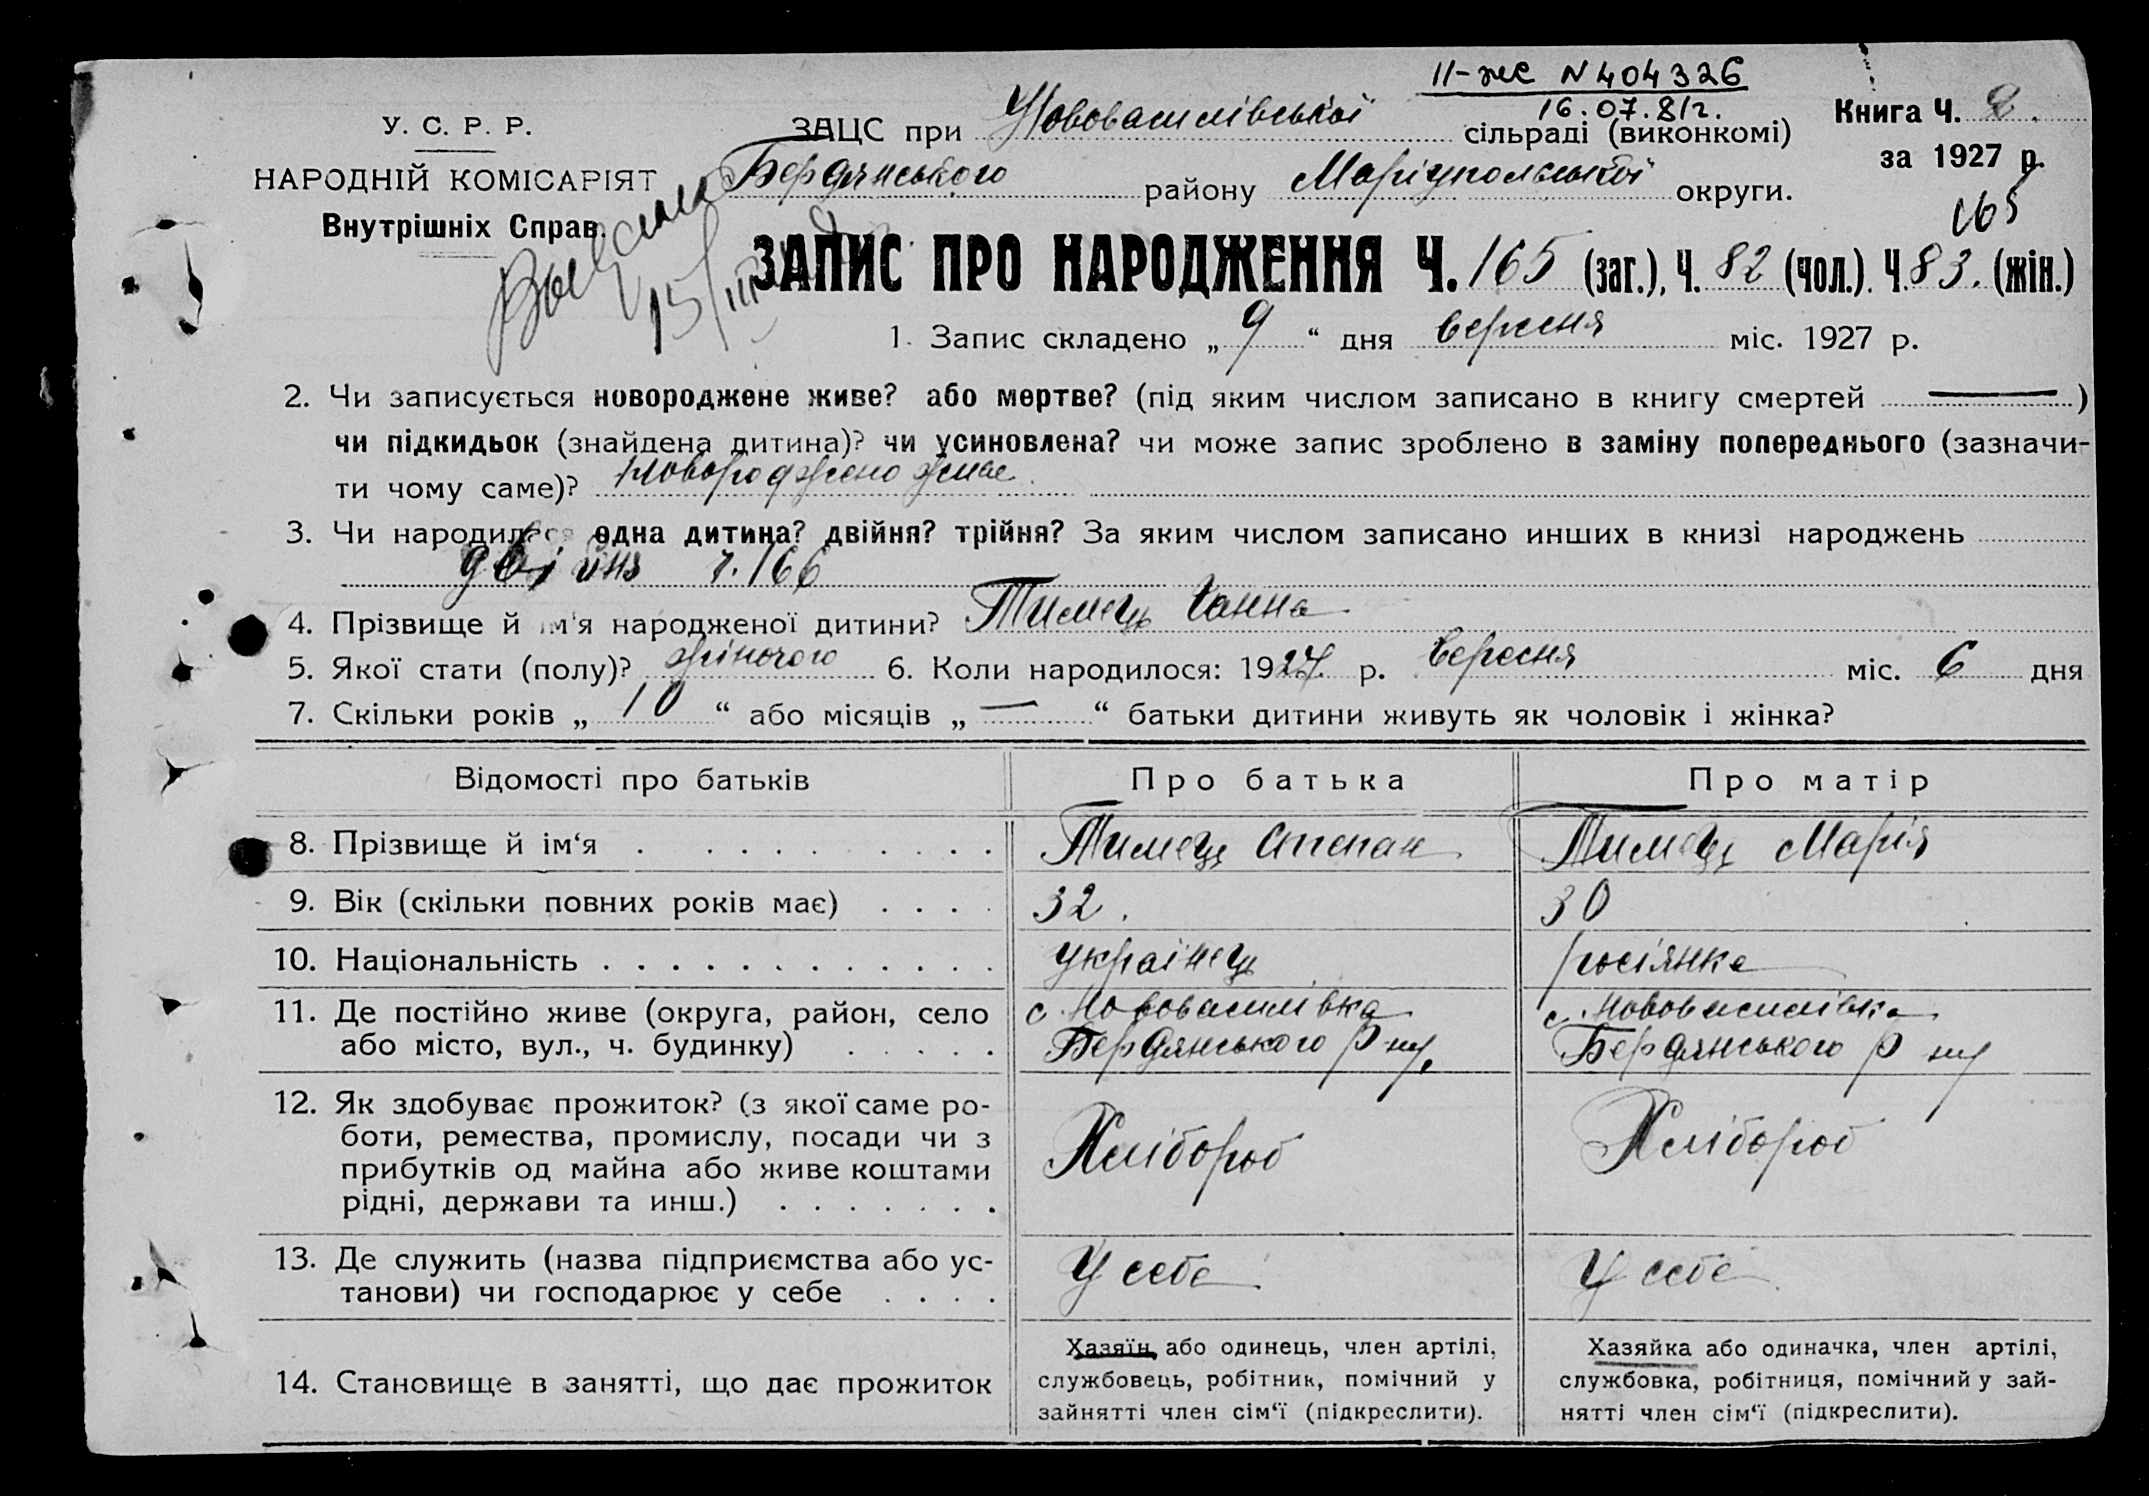 ІІ-жс N 404326
16.07.81г.
У. С. Р. Р.
НАРОДНІЙ КОМІСАРІЯТ
Внутрішніх Справ.
ЗАЦС при Нововасилівської сільраді (виконкомі)
Бердянського району Маріупольської округи.
Книга Ч. 2.
за 1927 р.
165
15/III
ЗАПИС ПРО НАРОДЖЕННЯ Ч. 165 (заг.), Ч. 82 (чол.). Ч. 83. (жін.)
1. Запис складено „ 9 “ дня вересня міс. 1927 р.
2. Чи записується новороджене живе? або мертве? (під яким числом записано в книгу смертей —)
чи підкидьок (знайдена дитина)? чи усиновлена? чи може запис зроблено в заміну попереднього (зазначи-
ти чому саме)? новороджено живе.
3. Чи народилася одна дитина? двійня? трійня? За яким числом записано инших в книзі народжень
двійня ч. 166
4. Прізвище й ім'я народженої дитини? Тимець Ганна
5. Якої стати (полу)? жіночого 6. Коли народилося: 1927. р. вересня міс. 6 дня
7. Скільки років „ 10 “ або місяців „ — “ батьки дитини живуть як чоловік і жінка?
Відомості про батьків Про батька Про матір
8. Прізвище й ім‘я . . . . . . . . . Тимець Степан Тимець Марія
9. Вік (скільки повних років має) . . . . 32. 30
10. Національність . . . . . . . . . . . українець росіянка
11. Де постійно живе (округа, район, село с. Нововасилівка с. Нововасилівка
або місто, вул., ч. будинку) . . . . . Бердянського р-ну. Бердянського р-ну
12. Як здобуває прожиток? (з якої саме ро-
боти, ремества, промислу, посади чи з
прибутків од майна або живе коштами
рідні, держави та инш.) . . . . . . .
Хлібороб Хлібороб
13. Де служить (назва підприємства або ус-
танови) чи господарює у себе . . . .
У себе У себе
14. Становище в занятті, що дає прожиток
Хазяїн, або одинець, член артілі,
службовець, робітник, помічний у
зайнятті член сім‘ї (підкреслити).
Хазяйка або одиначка, член артілі,
службовка, робітниця, помічний у зай-
нятті член сім‘ї (підкреслити).